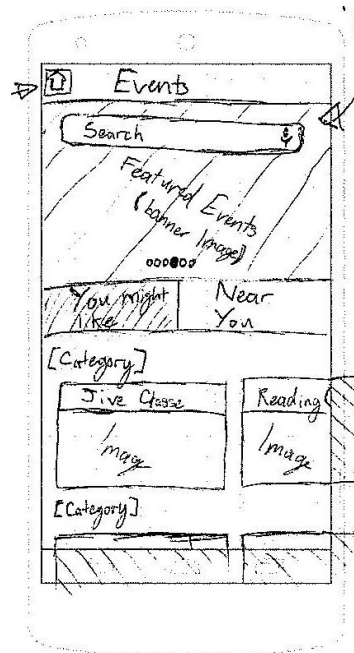 Events
Search
Featured Events
(banner Image)
You might
like
Near
You
[Category]
Jive Classe
Reading
Image
Image
[Category]